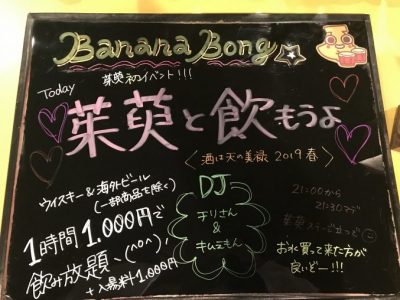 Banana Bong
Today
茱萸初イベント!!!
茱萸と飲もうよ
<酒は天の美禄 2019春>
ウイスキー&海外ビール
(一部商品を除く)
1時間1.000円で
飲み放題、(^o^)
+入場料1.000円
DJ
チリさん
&
キムヱもん
21:00から
21:30まで
茱萸
お水買って来た方が
良いどー!!!